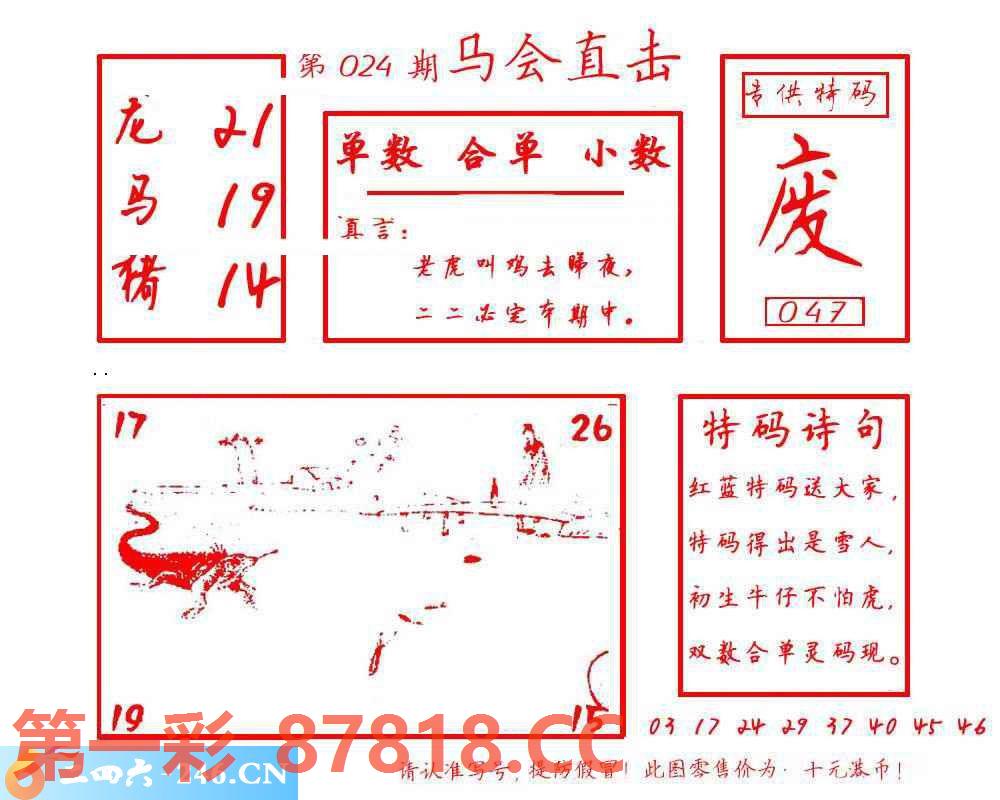 第 024 期 马会直击
龙 21
马 19
猪 14
单数 合单 小数
真言:
老虎叫鸡去睇夜,
二二必定本期中。
专供特码
废
047
17 26
19 15
特码诗句
红蓝特码送大家,
特码得出是雪人,
初生牛仔不怕虎,
双数合单灵码现。
03 17 24 29 37 40 45 46
第一彩 87818.CC
二四六-246.CN
请认准写号,提防假冒!此图零售价为·十元港币!